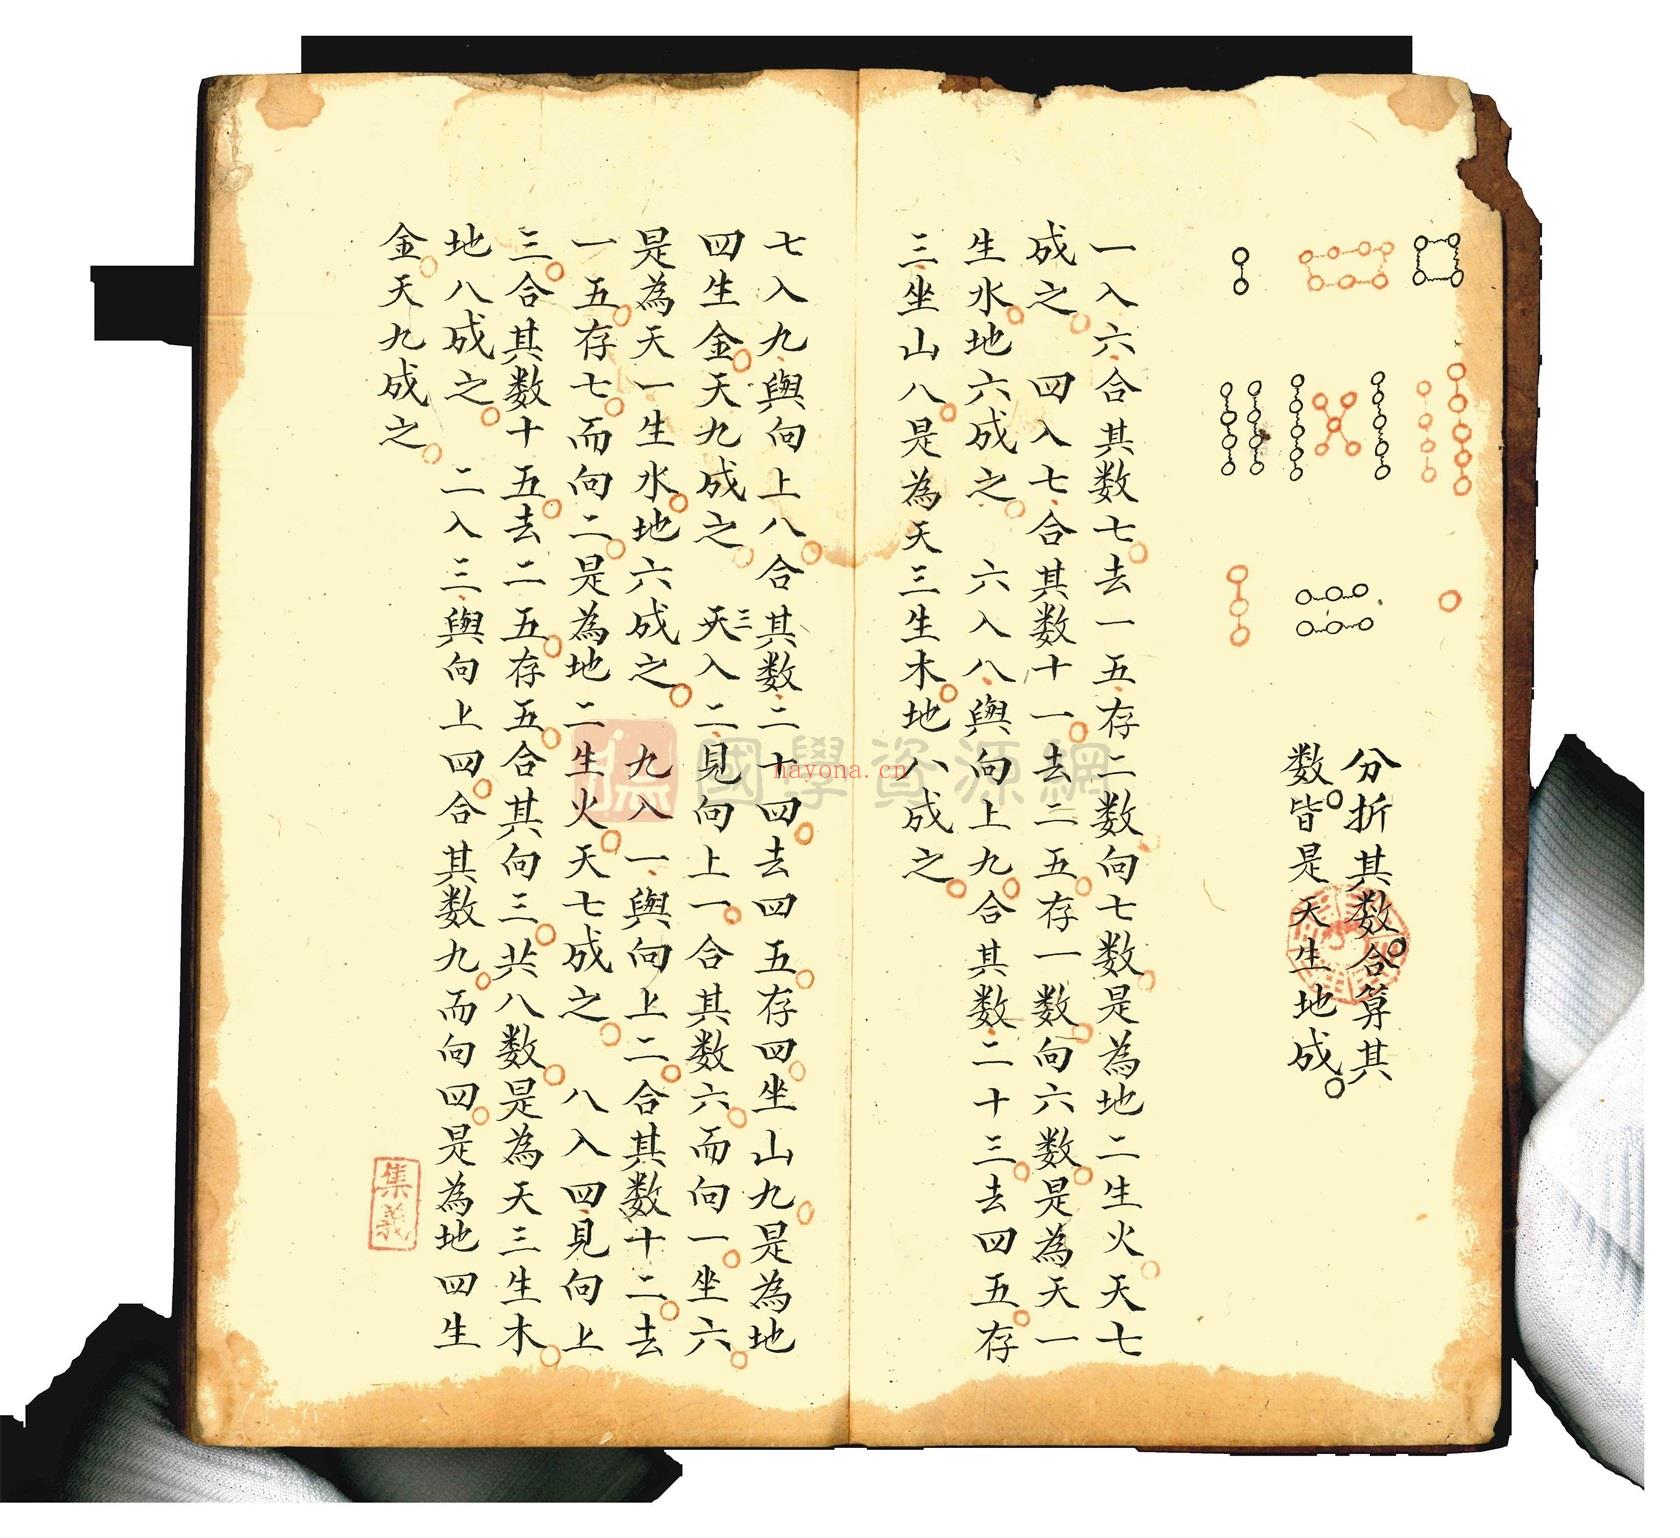 分折其数合算其
数皆是天生地成
一入六合其数七去一五存二数向七数是為地二生火天七
成之　四入七合其数十一去二五存一数向六数是為天一
生水地六成之　六入八與向上九合其数二十三去四五存
三坐山八是為天三生木地八成之
七入九與向上八合其数二十四去四五存四坐山九是為地
四生金天九成之　三天入二見向上一合其数六而向一坐六
是為天一生水地六成之　九入一與向上二合其数十二去
一五存七而向二是為地二生火天七成之　八入四見向上
三合其数十五去二五存五合其向三共八数是為天三生木
地八成之　二入三與向上四合其数九而向四是為地四生
金天九成之
集義
國學資源網
nayona.cn